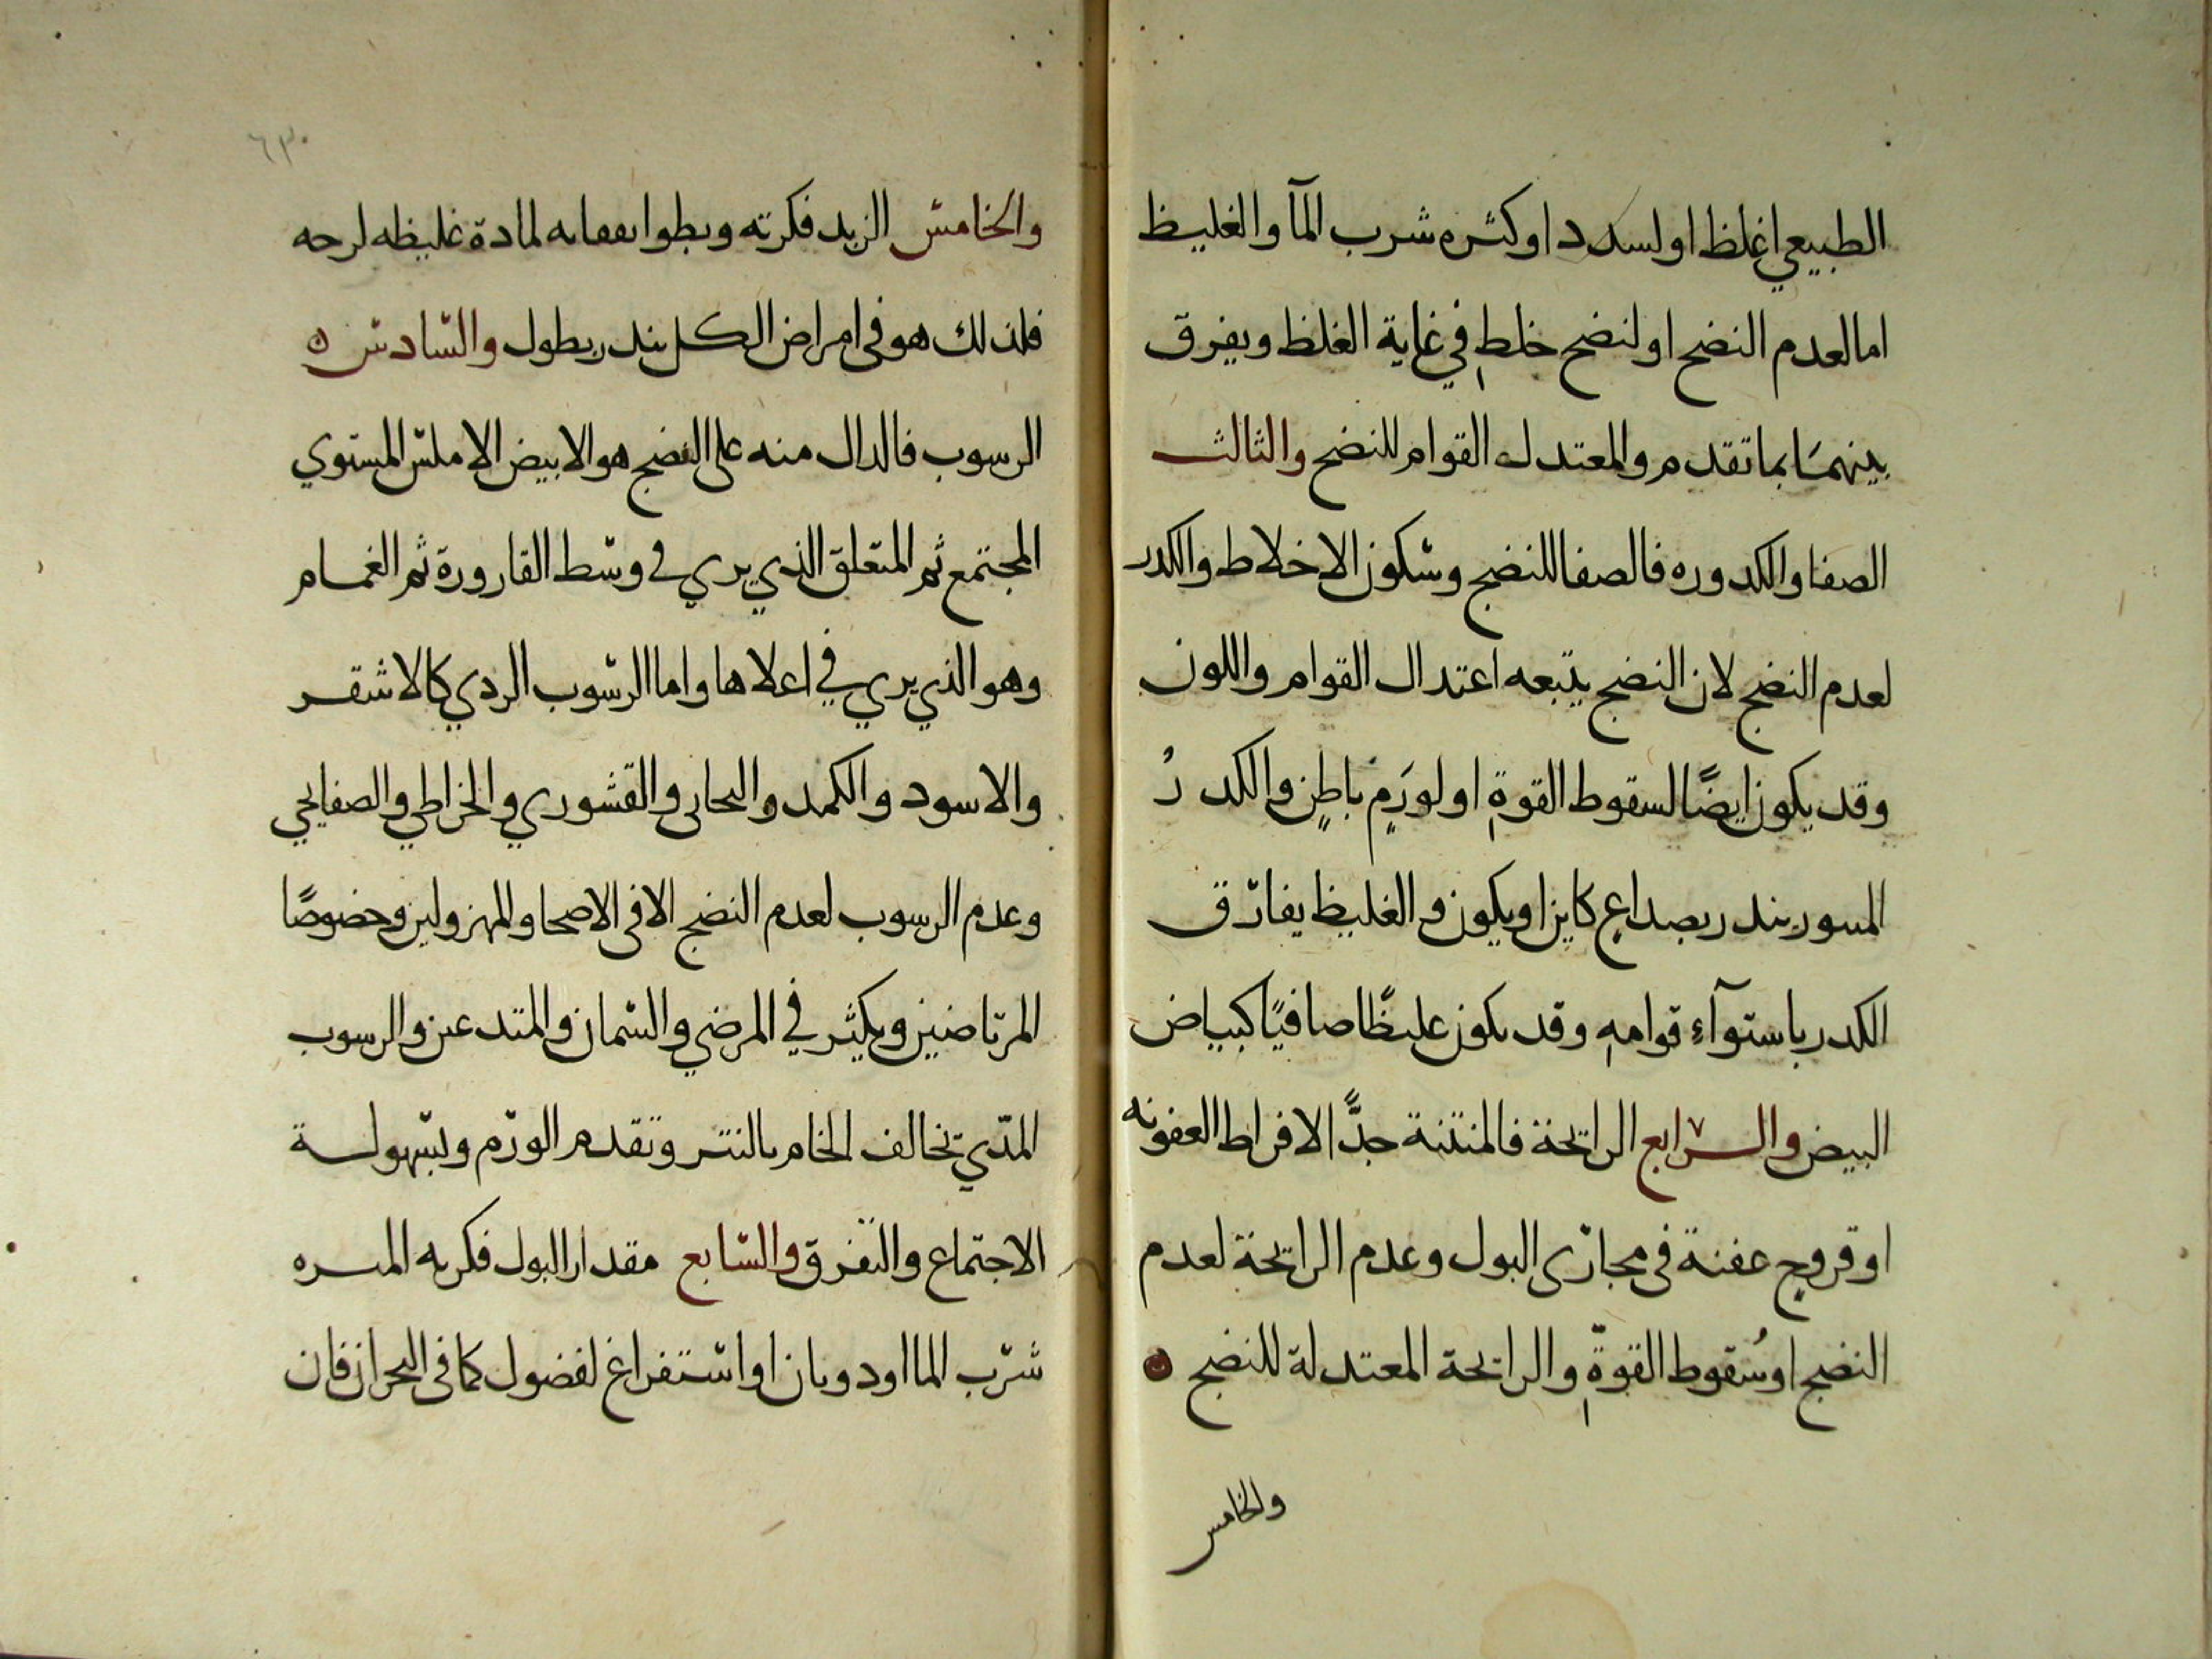 الطبيعي اغلظ او لسدد او كثره شرب المآ والغليظ
اما لعدم النضج او لنضج خلطٍ في غاية الغلظ ويفرق
بينهمَا بما تقدم والمعتدل القوام للنضج والثالث
الصفا والكدوره فالصفا للنضج وسكون الاخلاط والكدر
لعدم النضج لان النضج يتبعه اعتدال القوام واللون
وقد يكون ايضًا لسقوط القوةِ او لورَمٍ باطِنٍ والكدرُ
المسور يندر بصداعٍ كاين او يكون والغليظ يفارق
الكدر باستوآءِ قوامهِ وقد يكون غليظًا صافيًا كبياض
البيض والرابع الرايحة فالمنتنة جدًّا لافراط العفونه
او قروحٍ عفنة فى مجارى البول وعدم الرايحة لعدم
النضج او سُقوط القوّةِ والرايحة المعتدلة للنضج
والخامس
٦٣
والخامس الزبد فكثرته وبطو انفقايه لمادة غليظه لزجه
فلذلك هو فى امراض الكلى يندر بطول والسادس ه
الرسوب فالدال منه على النضج هو الابيض الاملس المستوي
المجتمع ثم المتعلق الذي يري في وسط القارورة ثم الغمام
وهو الذي يري في اعلاها واما الرسوب الردي كالاشقر
والاسود والكمد والنخالى والقشوري والخراطي والصفايحي
وعدم الرسوب لعدم النضج الا فى الاصحا والمهزولين وخصوصًا
المرتاضين ويكثر في المرضي والسمان والمتدعين والرسوب
المدّي يخالف الخام بالنتن وتقدم الورم وبسهولة
الاجتماع والتفرق والسابع مقدار البول فكثرته
شرب الما او دوبان او استفراغ لفضول كما فى البحران فان